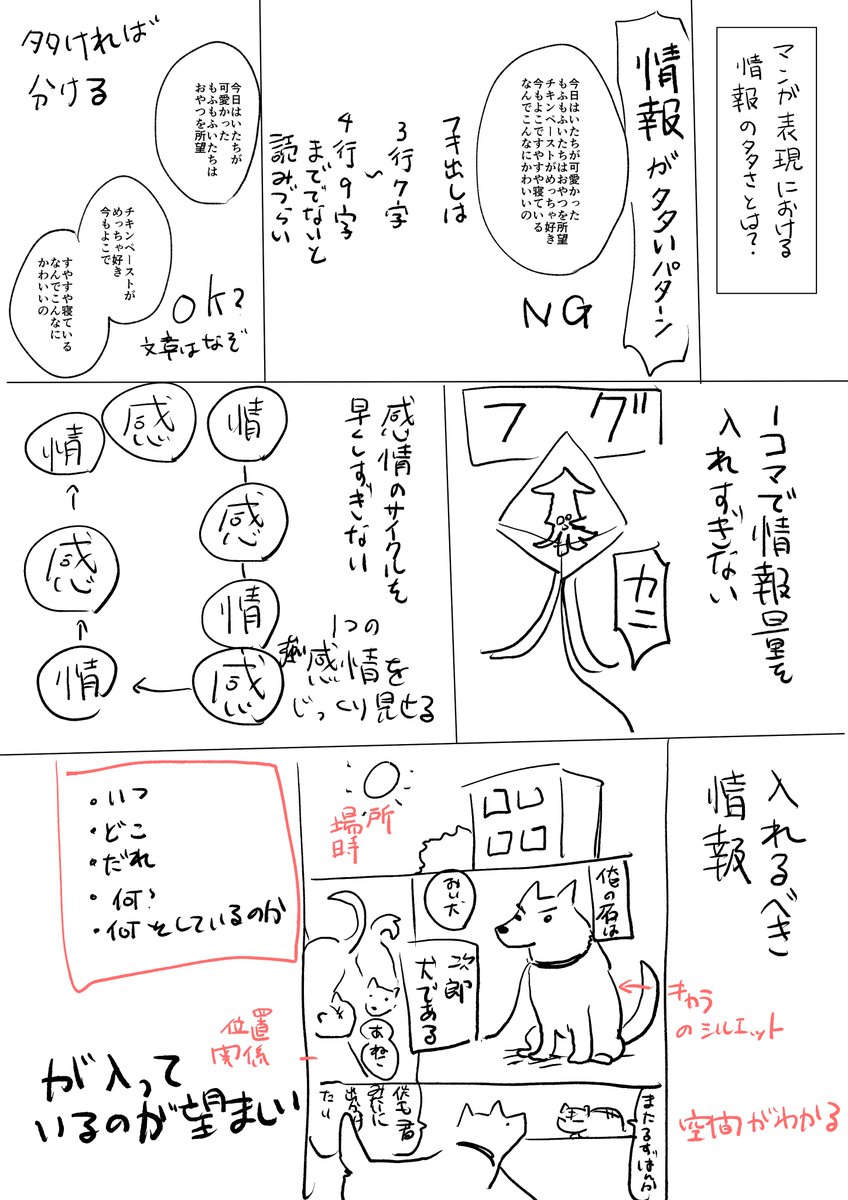 マンガ表現における
情報の多さとは?
情報が多いパターン
今日はいたちが可愛かった
もふもふいたちはおやつを所望
チキンペーストがめっちゃ好き
今もよこですやすや寝ている
なんでこんなにかわいいの
NG
フキ出しは
3行7字
~
4行9字
まででないと
読みづらい
多ければ
分ける
今日はいたちが
可愛かった
もふもふいたちは
おやつを所望
チキンペーストが
めっちゃ好き
今もよこで
すやすや寝ている
なんでこんなに
かわいいの
OK?
文章はなぞ
1コマで情報量を
入れすぎない
フグ
カニ
感情のサイクルを
早くしすぎない
情
感
情
感
情
感
情
感
1つの
感情を
じっくり見せる
入れるべき
情報
場所
時
俺の名は
おい犬
次郎
犬である
キャラ
のシルエット
位置
関係
あねご
空間がわかる
俺も君
みたいに
出かけ
たい
・いつ
・どこ
・だれ
・何?
・何をしているのか
が入って
いるのが望ましい